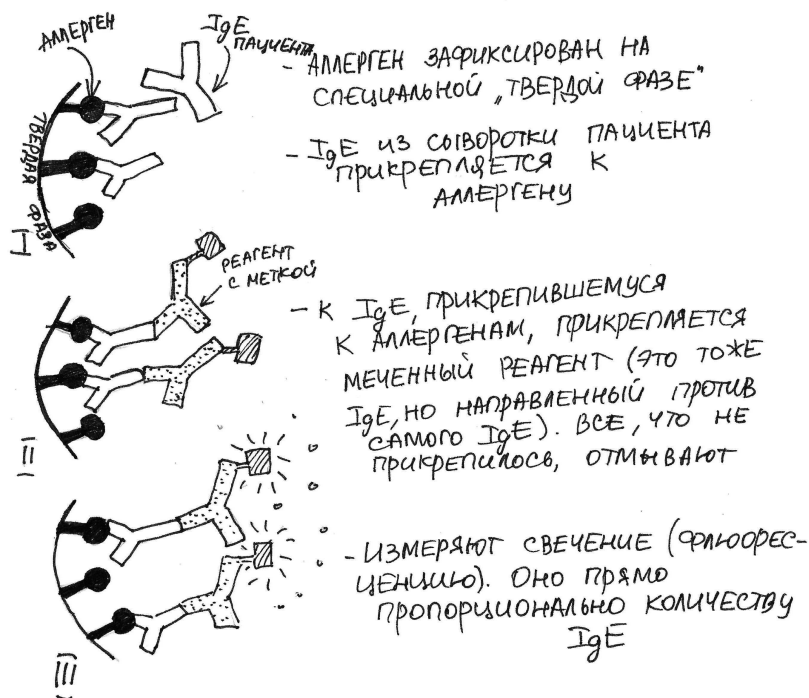 АЛЛЕРГЕН
IgE
ПАЦИЕНТА
- АЛЛЕРГЕН ЗАФИКСИРОВАН НА
СПЕЦИАЛЬНОЙ „ТВЕРДОЙ ФАЗЕ"
- IgE ИЗ СЫВОРОТКИ ПАЦИЕНТА
ПРИКРЕПЛЯЕТСЯ К
АЛЛЕРГЕНУ
ТВЕРДАЯ
ФАЗА
I
РЕАГЕНТ
С МЕТКОЙ
- К IgE, ПРИКРЕПИВШЕМУСЯ
К АЛЛЕРГЕНАМ, ПРИКРЕПЛЯЕТСЯ
МЕЧЕННЫЙ РЕАГЕНТ (ЭТО ТОЖЕ
IgE, НО НАПРАВЛЕННЫЙ ПРОТИВ
САМОГО IgE). ВСЕ, ЧТО НЕ
ПРИКРЕПИЛОСЬ, ОТМЫВАЮТ
II
- ИЗМЕРЯЮТ СВЕЧЕНИЕ (ФЛЮОРЕС-
ЦЕНЦИЮ). ОНО ПРЯМО
ПРОПОРЦИОНАЛЬНО КОЛИЧЕСТВУ
IgE
III